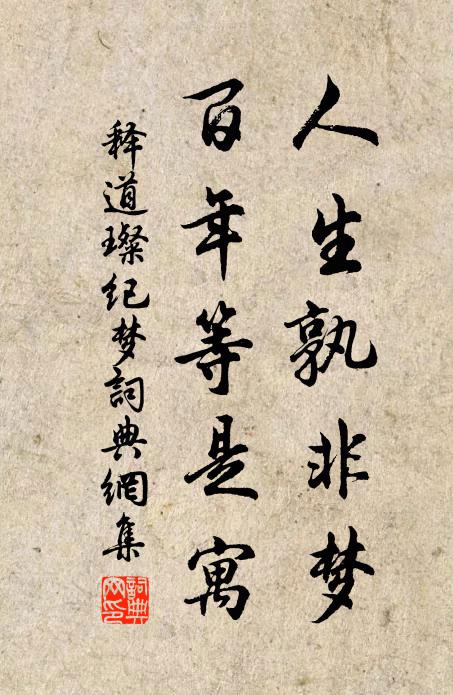 人生孰非梦
百年等是寓
释道璨纪梦词典網集
詞典网印